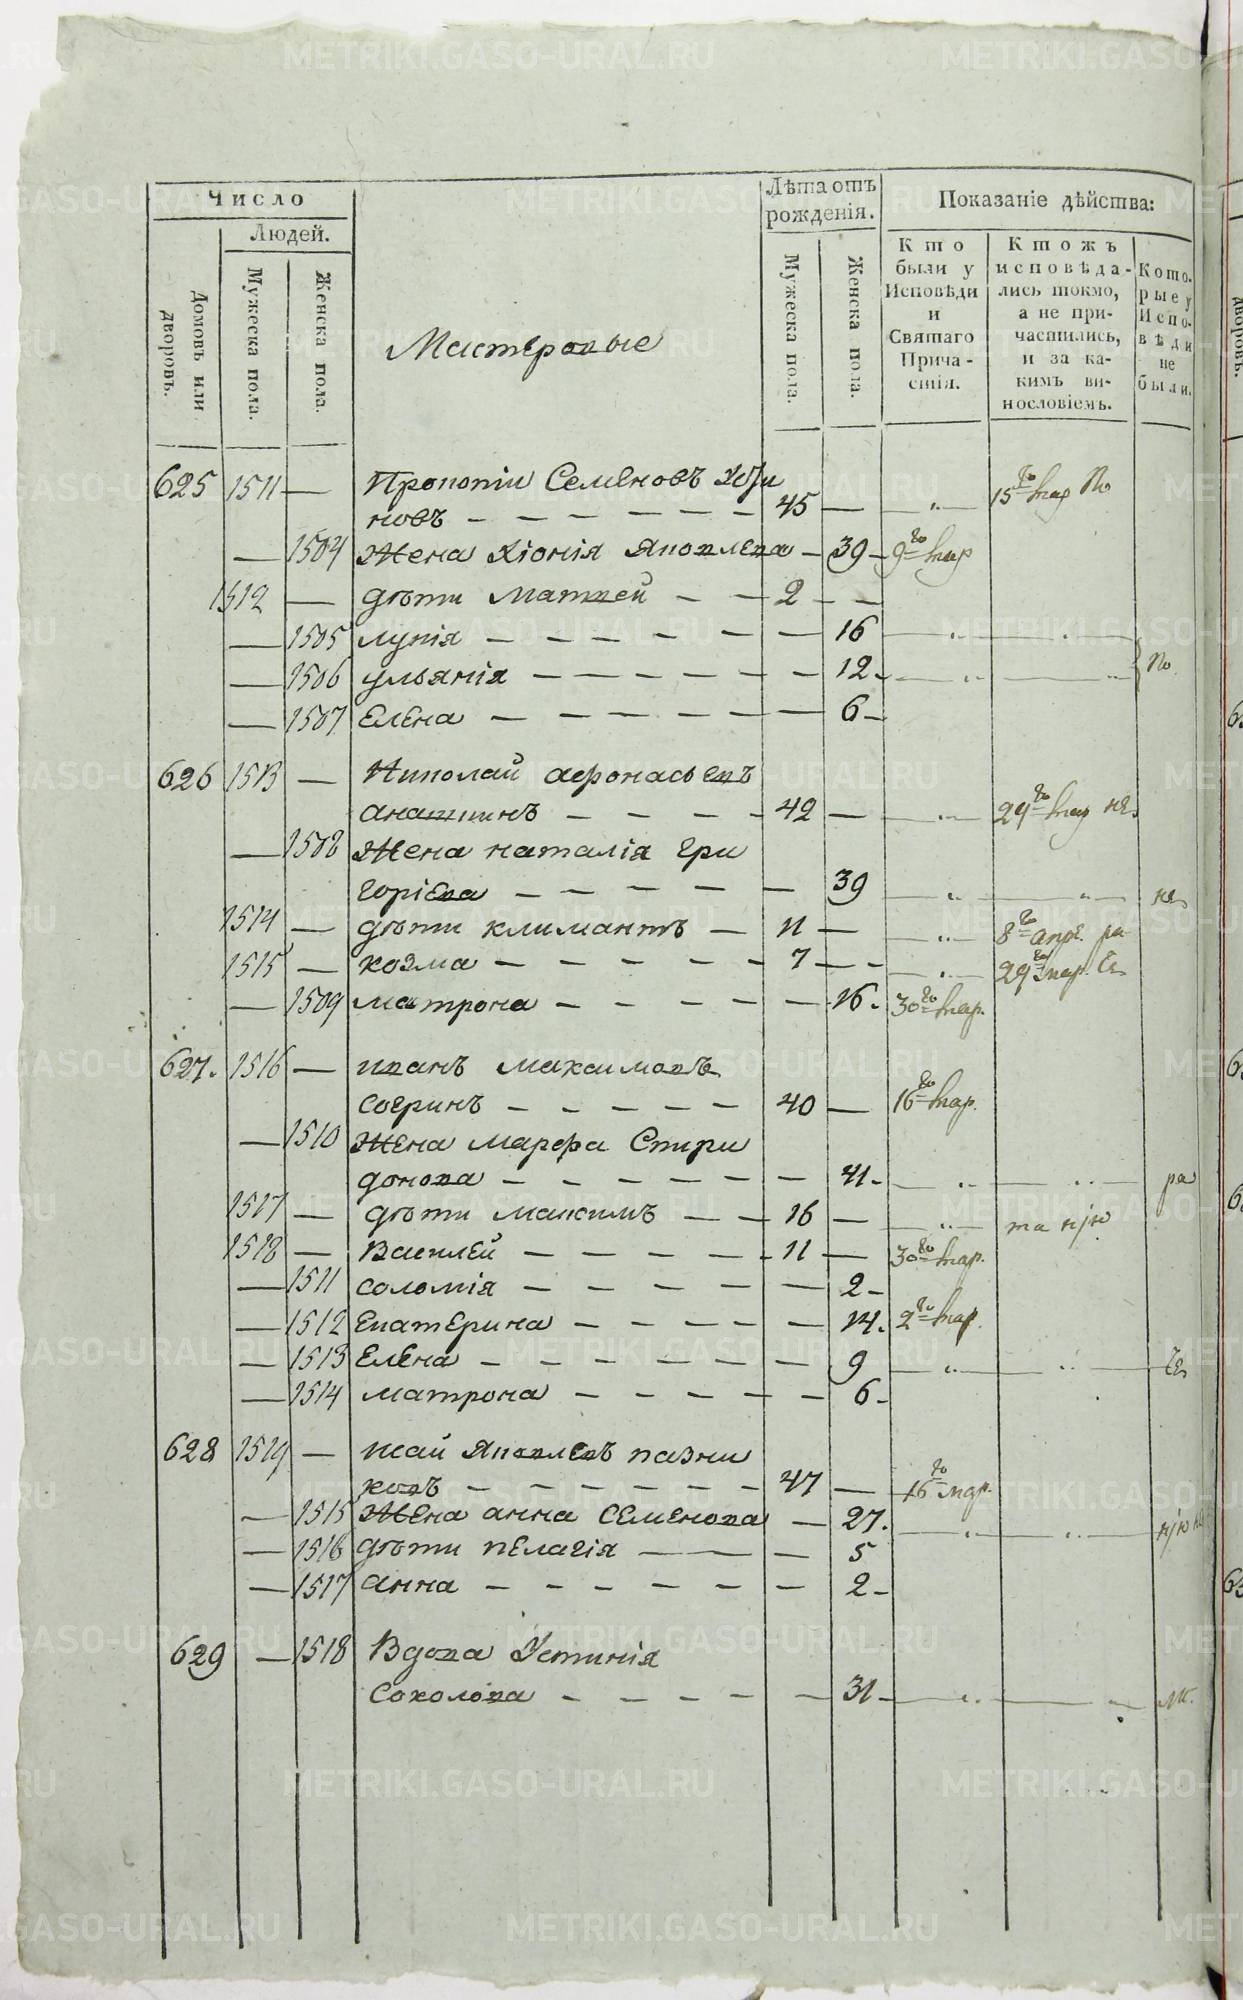 Число
Людей.
Домовъ или дворовъ.
Мужеска пола.
Женска пола.
Мастеровые
Лѣта отъ рожденія.
Мужеска пола.
Женска пола.
Показаніе дѣйства:
Кто были у Исповѣди и Святаго Причастія.
Ктожъ исповѣдались токмо, а не причастились, и за какимъ винословіемъ.
Которые у Исповѣди не были.
625 1511 — Прокопіи Семеновъ
новъ — 45 — 15го мар по
— 1504 Жена Хіонія Яковлева — 39 — 9го мар
1512 — дѣти Матвей — 2 —
— 1505 лукія — 16
— 1506 ульянія — 12 — по
— 1507 Елена — 6
626 1513 — Николай афонасьевъ
— 42 — 29го мар не
— 1508 Жена наталія гри
горіева — 39 — не
1514 — дѣти климантъ — 11 — 8го апре. ра
1515 — козма — 7 — 29го мар. Се
— 1509 матрона — 16. 30го мар.
627. 1516 — иванъ максимовъ
согринъ — 40 — 16го мар.
— 1510 Жена марфа Спири
донова — 41 — ра
1517 — дѣти максимъ — 16 —
1518 — Василей — 11 — 30го мар.
— 1511 соломія — 2
— 1512 Екатерина — 14. 2го мар.
— 1513 Елена — 9
— 1514 матрона — 6
628 1519 — исаи Яковлевъ пазни
ковъ — 47 — 16го мар.
— 1515 Жена анна Семенова — 27.
— 1516 дѣти пелагія — 5
— 1517 анна — 2
629 — 1518 Вдова Устинія
Соколова — 31
METRIKI.GASO-URAL.RU